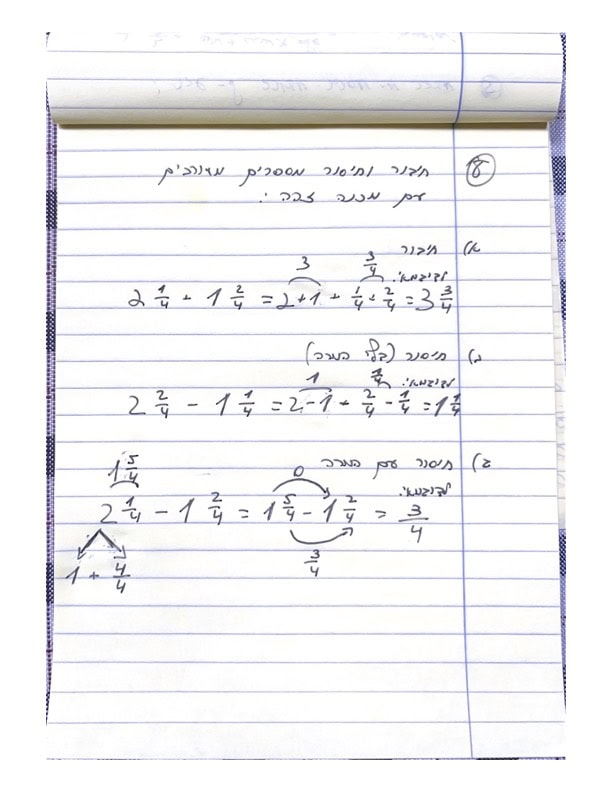 ⑱ חיבור וחיסור מספרים מעורבים
עם מכנה זהה :
א) חיבור
לדוגמא:
3 3/4
2 1/4 + 1 2/4 = 2+1 + 1/4 + 2/4 = 3 3/4
ב) חיסור (בלי המרה)
לדוגמא:
1 1/4
2 2/4 - 1 1/4 = 2-1 + 2/4 - 1/4 = 1 1/4
ג) חיסור עם המרה
לדוגמא:
1 5/4 0
2 1/4 - 1 2/4 = 1 5/4 - 1 2/4 = 3/4
3/4
1 + 4/4